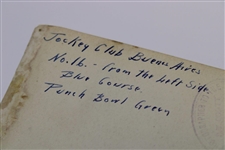 Jockey Club Buenos Aires
No. 16. - From the Left Side.
Blue Course.
Punch Bowl Green